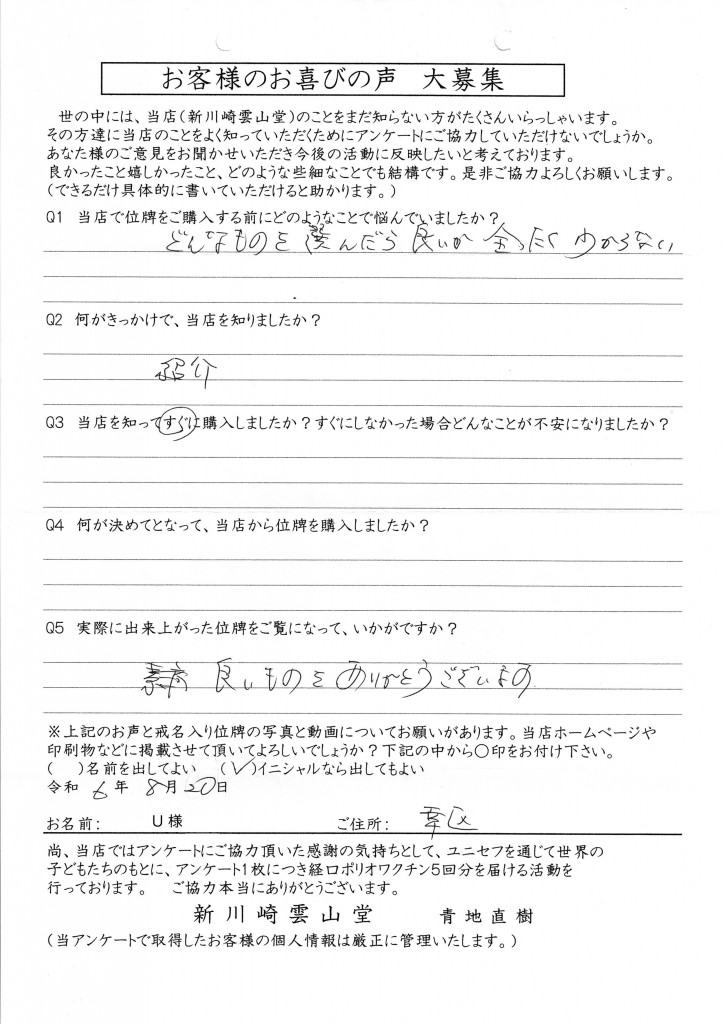 お客様のお喜びの声　大募集
世の中には、当店(新川崎雲山堂)のことをまだ知らない方がたくさんいらっしゃいます。
その方達に当店のことをよく知っていただくためにアンケートにご協力していただけないでしょうか。
あなた様のご意見をお聞かせいただき今後の活動に反映したいと考えております。
良かったこと嬉しかったこと、どのような些細なことでも結構です。是非ご協力よろしくお願いします。
(できるだけ具体的に書いていただけると助かります。)
Q1　当店で位牌をご購入する前にどのようなことで悩んでいましたか？
どんなものを選んだら良いか 全ったく わからない
Q2　何がきっかけで、当店を知りましたか？
紹介
Q3　当店を知ってすぐに購入しましたか？すぐにしなかった場合どんなことが不安になりましたか？
Q4　何が決めてとなって、当店から位牌を購入しましたか？
Q5　実際に出来上がった位牌をご覧になって、いかがですか？
良いものを ありがとうございます
※上記のお声と戒名入り位牌の写真と動画についてお願いがあります。当店ホームページや
印刷物などに掲載させて頂いてよろしいでしょうか？下記の中から〇印をお付け下さい。
(　)名前を出してよい　(✓)イニシャルなら出してもよい
令和 6 年 8 月 20 日
お名前：　U様　ご住所：　幸区
尚、当店ではアンケートにご協力頂いた感謝の気持ちとして、ユニセフを通じて世界の
子どもたちのもとに、アンケート1枚につき経口ポリオワクチン5回分を届ける活動を
行っております。　ご協力本当にありがとうございます。
新川崎雲山堂　青地直樹
(当アンケートで取得したお客様の個人情報は厳正に管理いたします。)